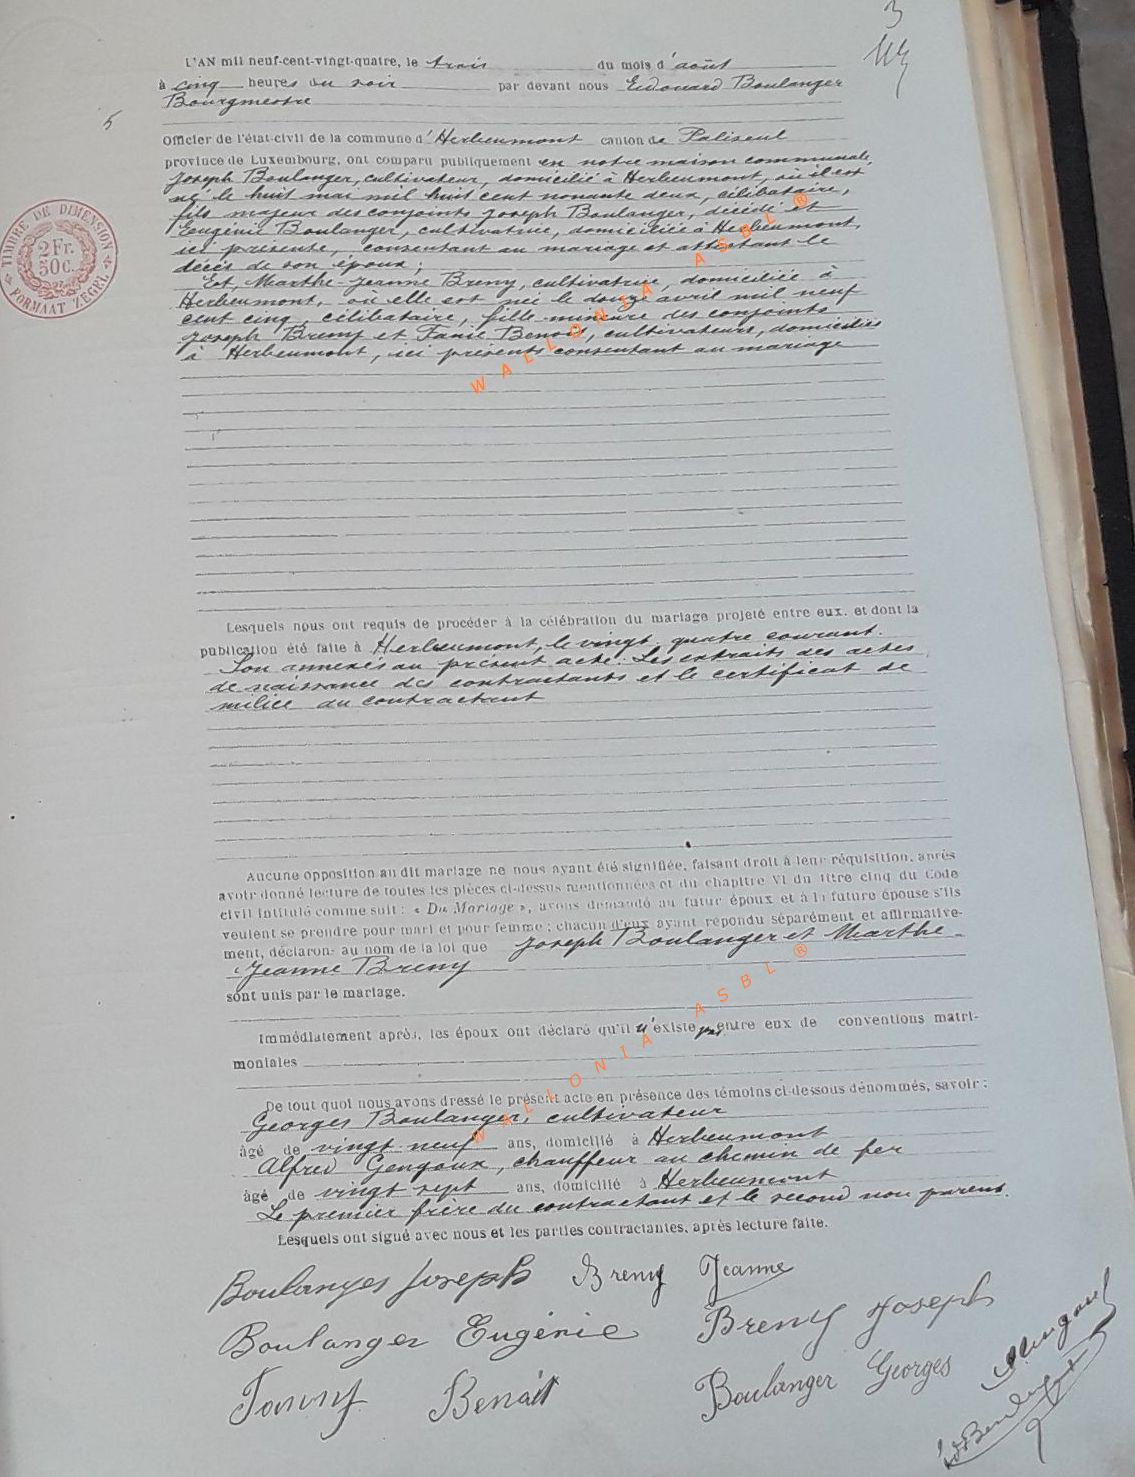 3
L'AN mil neuf-cent-vingt-quatre, le trois du mois d'août
à cinq heures du soir par devant nous Edouard Boulanger
Bourgmestre
5
Officier de l'état-civil de la commune d'Herbeumont canton de Paliseul
province de Luxembourg, ont comparu publiquement en notre maison communale,
Joseph Boulanger, cultivateur, domicilié à Herbeumont, où il est
né le huit mai mil huit cent nonante deux, célibataire,
fils majeur des conjoints Joseph Boulanger, décédé et
Eugénie Boulanger, cultivatrice, domiciliée à Herbeumont,
ici présente, consentant au mariage et attestant le
décès de son époux ;
TIMBRE DE DIMENSION
2 Fr.
50c.
FORMAAT ZEGEL
Et, Marthe-Jeanne Bremy, cultivatrice, domiciliée à
Herbeumont, où elle est née le douze avril mil neuf
cent cinq, célibataire, fille mineure des conjoints
Joseph Bremy et Fanie Benoit, cultivateurs, domiciliés
à Herbeumont, ici présents consentant au mariage
WALLONIA ASBL ®
Lesquels nous ont requis de procéder à la célébration du mariage projeté entre eux, et dont la
publication été faite à Herbeumont, le vingt-quatre courant.
Son annexés au présent acte : Les extraits des actes
de naissance des contractants et le certificat de
milice du contractant
Aucune opposition au dit mariage ne nous ayant été signifiée, faisant droit à leur réquisition, après
avoir donné lecture de toutes les pièces ci-dessus mentionnées et du chapitre VI du titre cinq du Code
civil intitulé comme suit : « Du Mariage », avons demandé au futur époux et à la future épouse s'ils
veulent se prendre pour mari et pour femme ; chacun d'eux ayant répondu séparément et affirmative-
ment, déclarons au nom de la loi que Joseph Boulanger et Marthe-
Jeanne Bremy
sont unis par le mariage.
Immédiatement après, les époux ont déclaré qu'il n'existe pas entre eux de conventions matri-
moniales
WALLONIA ASBL ®
De tout quoi nous avons dressé le présent acte en présence des témoins ci-dessous dénommés, savoir :
Georges Boulanger, cultivateur
âgé de vingt neuf ans, domicilié à Herbeumont
Alfred Gengoux, chauffeur au chemin de fer
âgé de vingt sept ans, domicilié à Herbeumont
Le premier frère du contractant et le second non parent.
Lesquels ont signé avec nous et les parties contractantes, après lecture faite.
Boulanger Joseph Bremy Jeanne
Boulanger Eugénie Bremy Joseph
Fanny Benoit Boulanger Georges